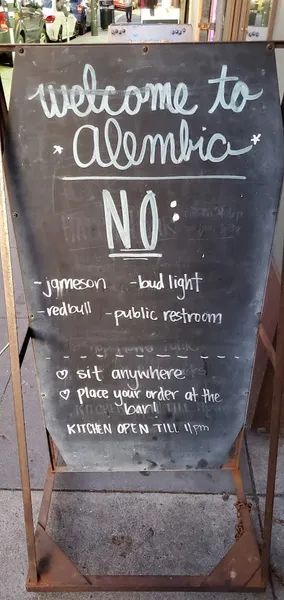 welcome to
* alembic *
NO:
- jameson - bud light
- redbull - public restroom
♡ sit anywhere
♡ place your order at the
bar!
KITCHEN OPEN TILL 11pm